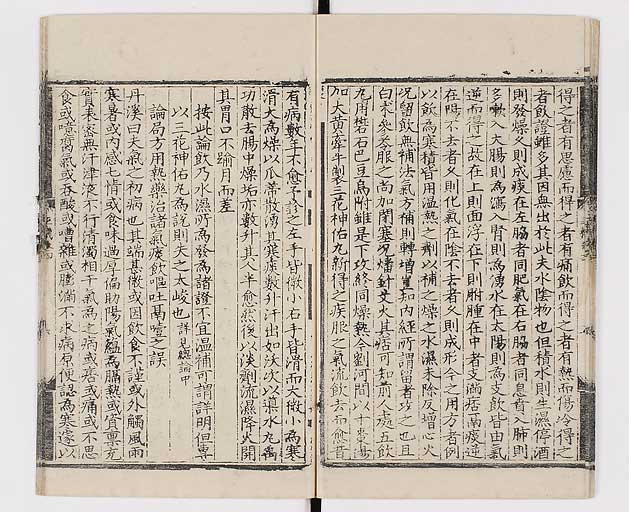 得之者有思慮而得之者有痛飲而得之者有熱而傷冷得之
者飲證雖多其因無出於此夫水陰物也但積水則生濕停酒
則發燥久則成痰在左脇者同肥氣在右脇者同息賁入肺則
多嗽入大腸則為瀉入腎則為湧水在太陽則為支飲皆由氣
逆而得之故在上則面浮在下則胕腫在中者支滿痞膈痰逆
在陽不去者久則化氣在陰不去者久則成形今之用方者例
以飲為寒積皆用溫熱之劑以補之燥之水濕未除反增心火
況留飲無補法氣方補則轉增豈知內經所謂留者攻之也且
白朮參茯苓服之尚加閉塞燔針艾火其痞可知前人處五飲
丸用礬石巴豆烏附雖是下攻終同燥熱今劉河間以十棗湯
加大黃牽牛製三花神佑丸新得之疾服之氣流飲去而愈昔
有病數年不愈予診之左手皆微小右手皆滑而大微小為寒
滑大為燥以瓜蒂散湧其寒痰數升汗出如沃次以導水丸禹
功散去腸中燥垢亦數升其人半愈然後以淡劑流濕降火開
其胃口不踰月而差
按此論飲乃水濕所為發為諸證不宜溫補可謂詳明但專
以三花神佑丸為說則失之太峻也詳見總論中
論局方用熱藥治諸氣痰飲嘔吐膈噎之誤
丹溪曰夫氣之初病也其端甚微或因飲食不謹或外觸風雨
寒暑或內感七情或食味過厚偏助陽氣蘊為膈熱或資稟充
實表密無汗津液不行清濁相干氣為之病或痞或痛或不思
食或噫腐氣或吞酸或嘈雜或膨滿不求病原便認為寒遽以